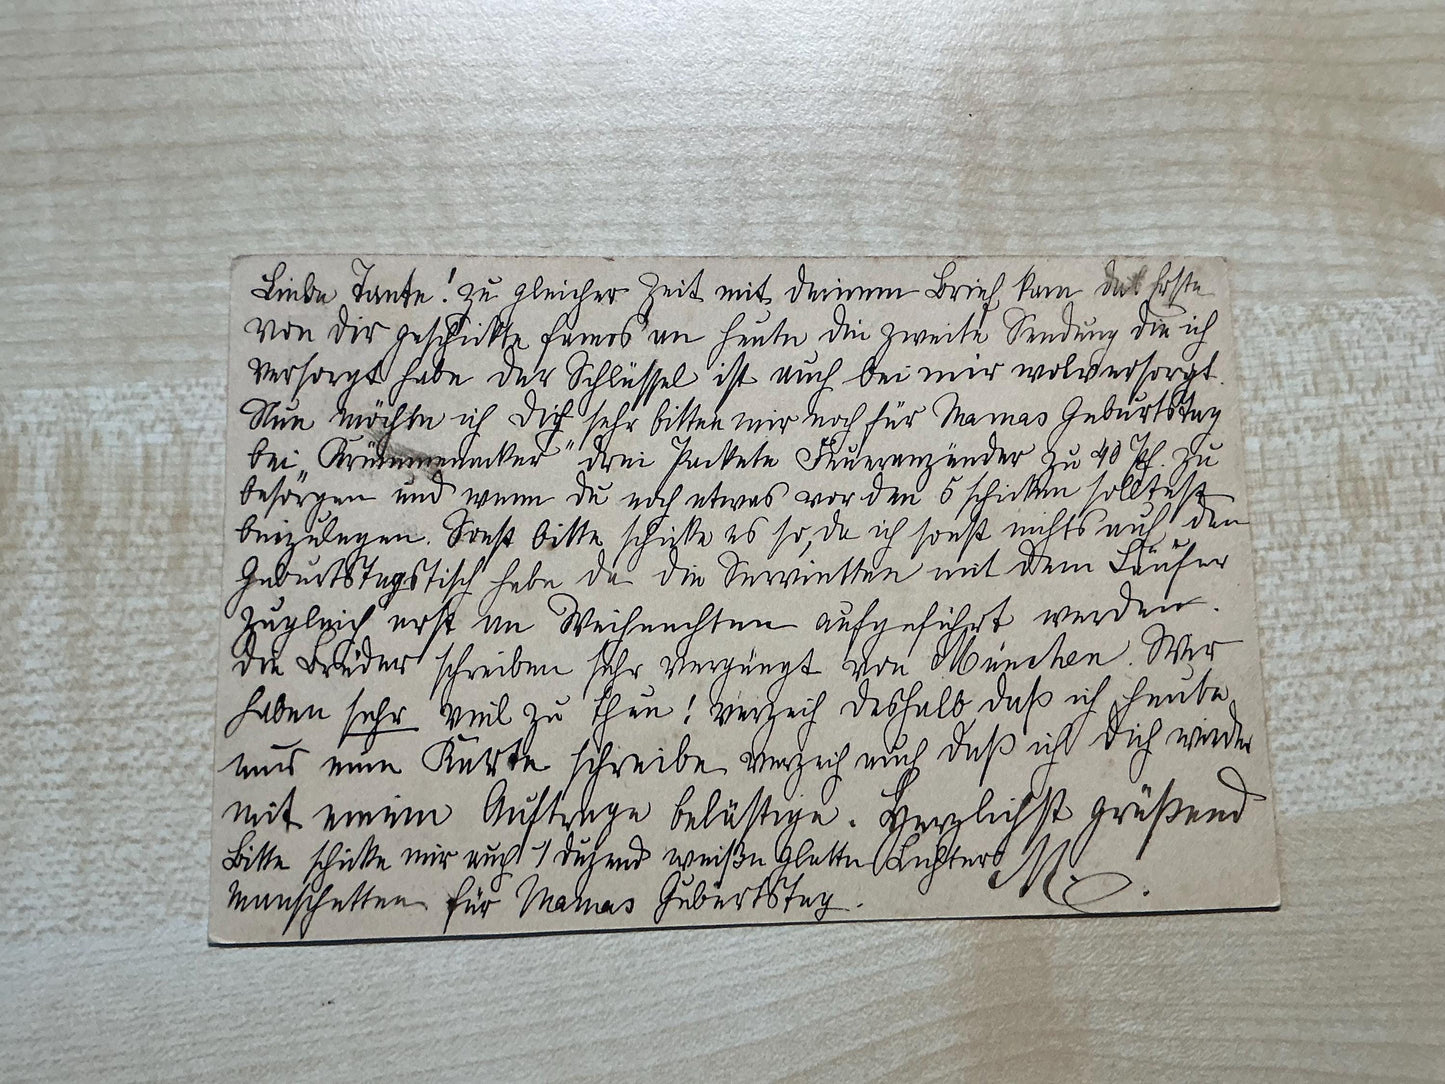 Liebe Tante! Zu gleicher Zeit mit deinem Brief kam das Erste
von dir geschickte famos an heute die zweite Sendung die ich
versorgt habe der Schlüssel ist auch bei mir wolversorgt.
Nun möchte ich Dich sehr bitten mir noch für Mamas Geburtstag
bei „ " drei Packete Feueranzünder zu 40 Pf. zu
besorgen und wenn du noch etwas vor den 5 schicken solltest
beizulegen. Sonst bitte schicke es so, da ich sonst nichts auf den
Geburtstagstisch habe da die Servietten mit dem Läufer
zugleich erst an Weihnachten aufgeführt werden.
Die Brüder schreiben sehr vergnügt von München. Wir
haben sehr viel zu thun! Verzeih deshalb daß ich heute
nur eine Karte schreibe verzeih auch daß ich Dich wieder
mit einem Auftrage belästige. Herzlichst grüßend
Bitte schicke mir auch 1 Duzend weiße glatte Lichter M.
manschetten für Mamas Geburtstag.